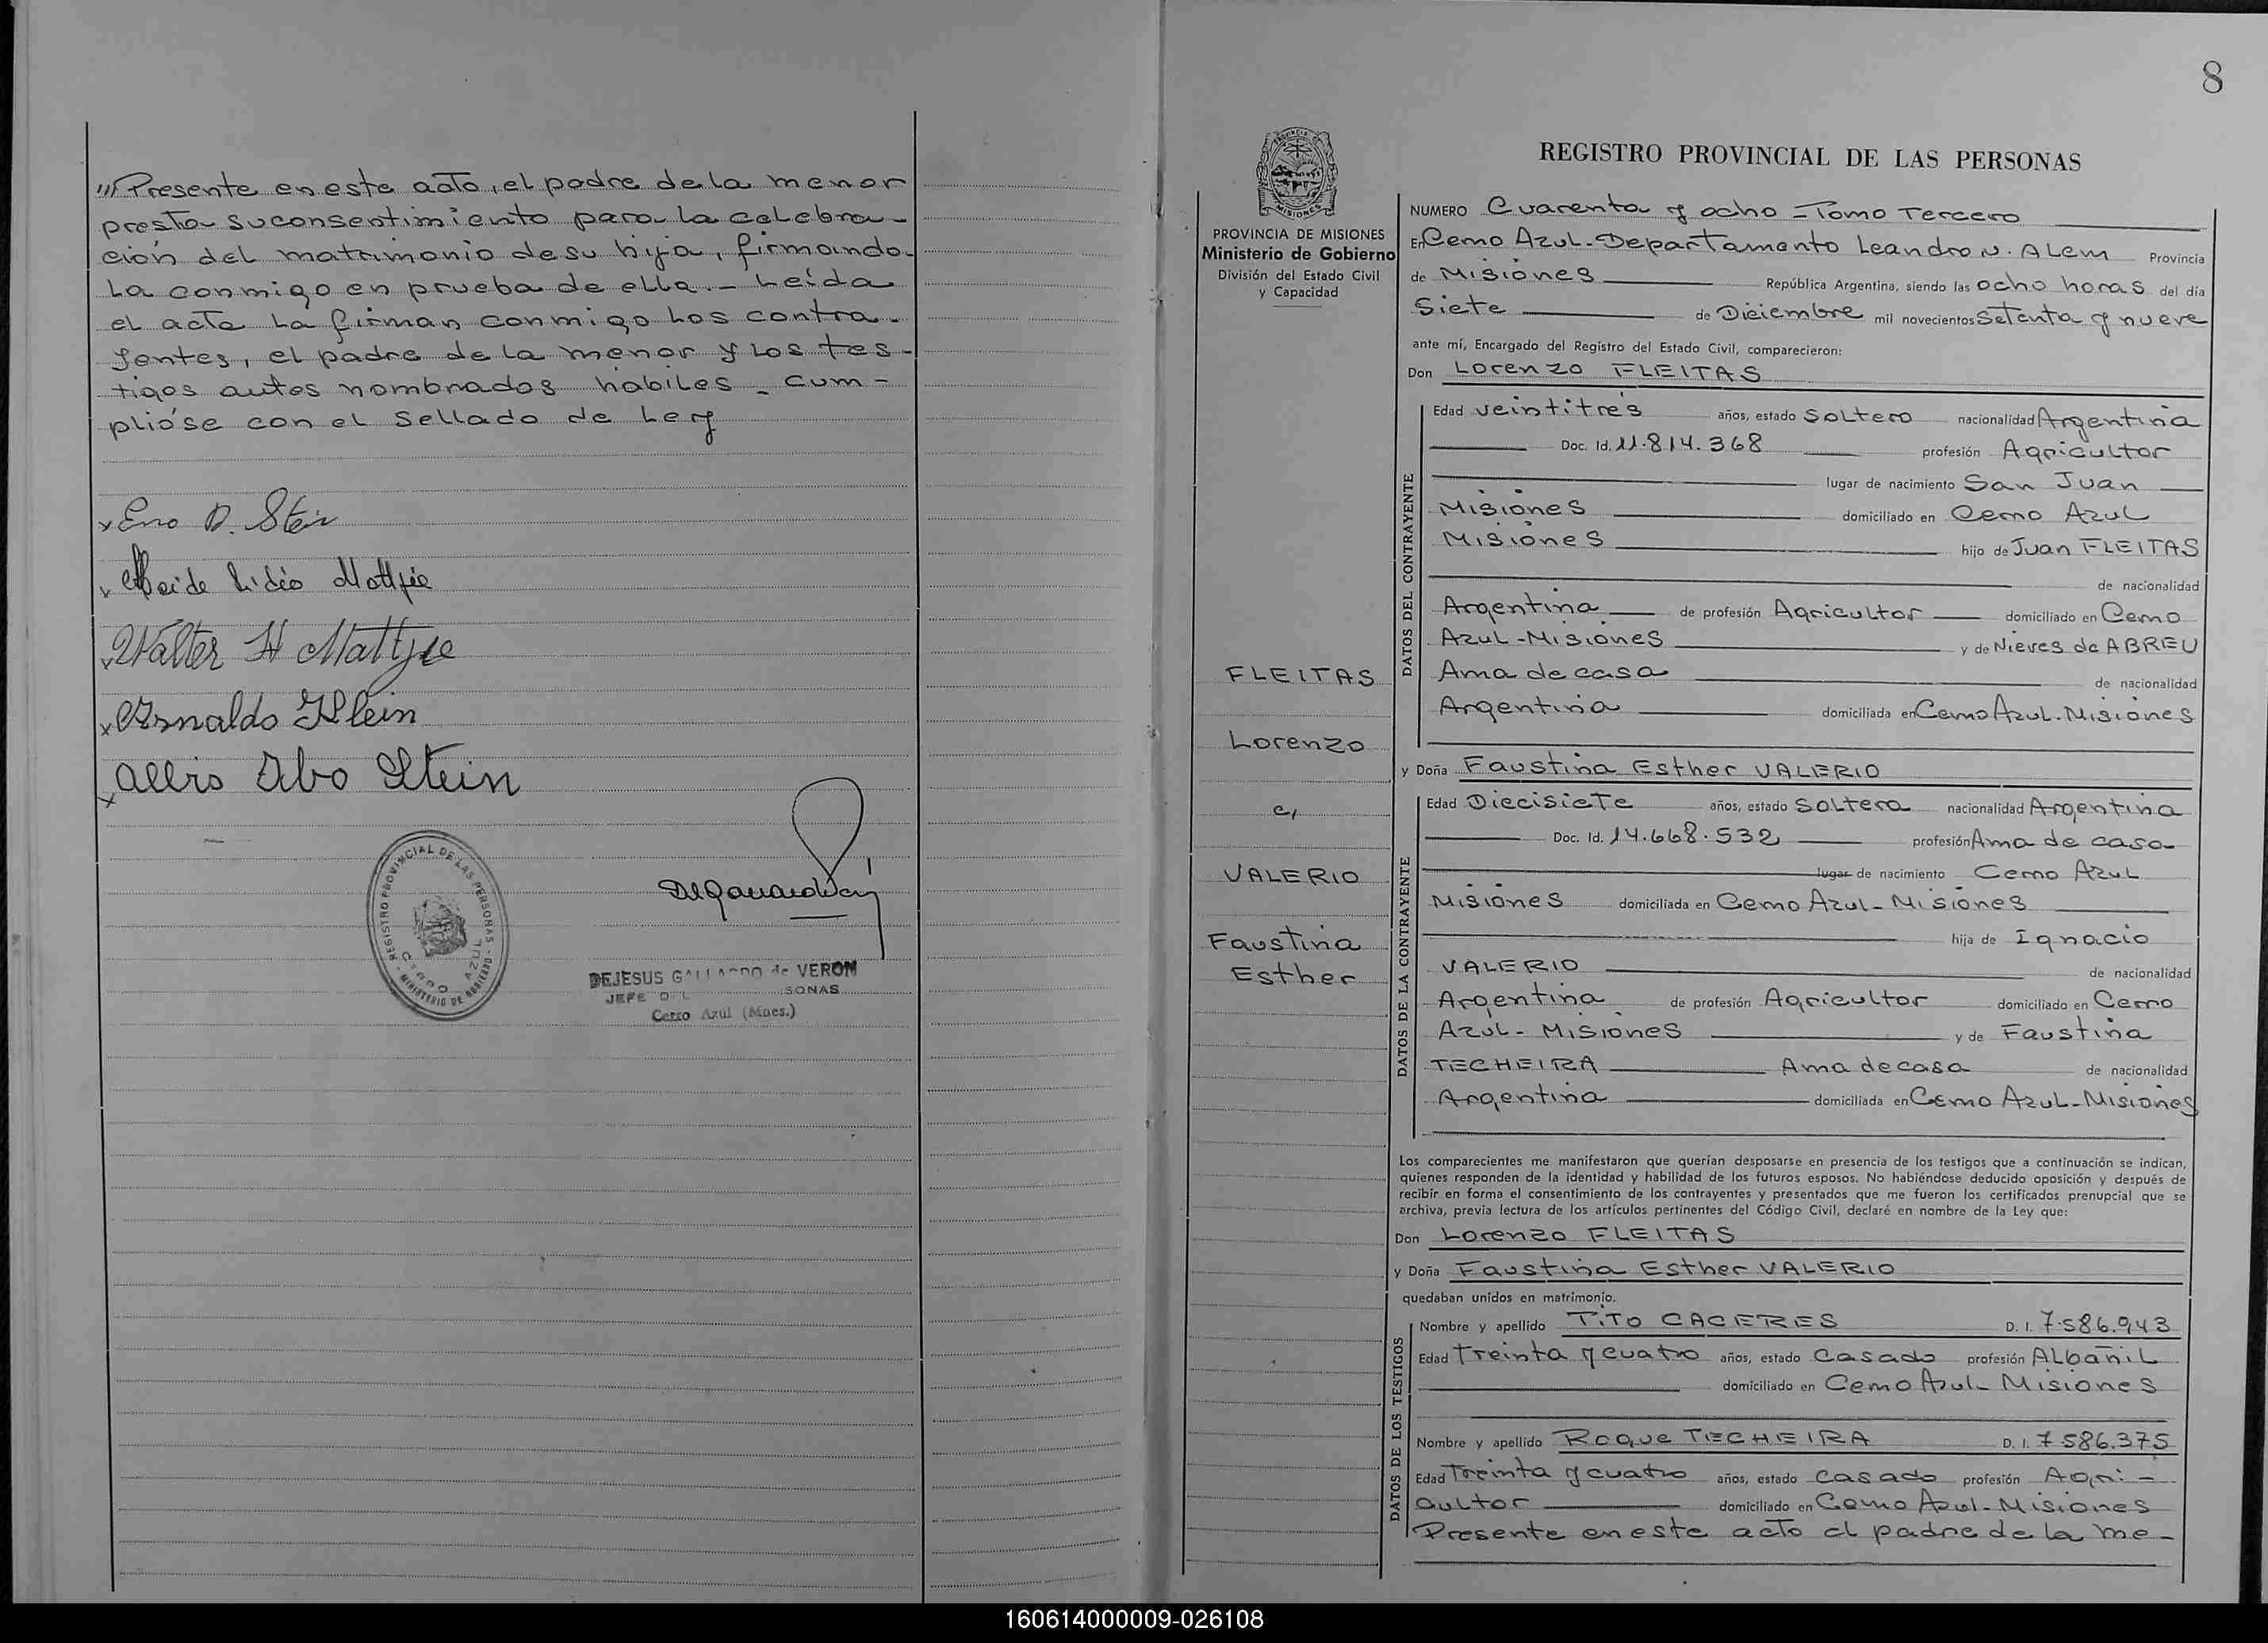 "// Presente en este acto, el padre de la menor
presta su consentimiento para la celebra-
ción del matrimonio de su hija, firmando-
la conmigo en prueba de ella.- Leída
el acta la firman conmigo los contra-
yentes, el padre de la menor y los tes-
tigos antes nombrados hábiles - Cum-
plióse con el Sellado de Ley
x Eno D. Stein
x Neide Lidia Mattjie
x Walter H Mattjie
x Arnaldo Klein
x Allis Ibo Stein
REGISTRO PROVINCIAL DE LAS PERSONAS - MINISTERIO DE GOBIERNO -
CERRO AZUL
DEJESUS GALLARDO de VERON
JEFE D L SONAS
Cerro Azul (Mnes.)
8
PROVINCIA DE MISIONES
Ministerio de Gobierno
División del Estado Civil
y Capacidad
FLEITAS
Lorenzo
c/
VALERIO
Faustina
Esther
REGISTRO PROVINCIAL DE LAS PERSONAS
NUMERO Cuarenta y ocho - Tomo Tercero
En Cerro Azul - Departamento Leandro N. Alem Provincia
de Misiones República Argentina, siendo las ocho horas del día
Siete de Diciembre mil novecientos Setenta y nueve
ante mí, Encargado del Registro del Estado Civil, comparecieron:
Don Lorenzo FLEITAS
DATOS DEL CONTRAYENTE
Edad veintitrés años, estado Soltero nacionalidad Argentina
Doc. Id. 11.814.368 profesión Agricultor
lugar de nacimiento San Juan
Misiones domiciliado en Cerro Azul
Misiones hijo de Juan FLEITAS
de nacionalidad
Argentina de profesión Agricultor domiciliado en Cerro
Azul - Misiones y de Nieves de ABREU
Ama de casa de nacionalidad
Argentina domiciliada en Cerro Azul - Misiones
y Doña Faustina Esther VALERIO
DATOS DE LA CONTRAYENTE
Edad Diecisiete años, estado Soltera nacionalidad Argentina
Doc. Id. 14.668.532 profesión Ama de casa-
lugar de nacimiento Cerro Azul
Misiones domiciliada en Cerro Azul - Misiones
hija de Ignacio
VALERIO de nacionalidad
Argentina de profesión Agricultor domiciliado en Cerro
Azul - Misiones y de Faustina
TECHEIRA Ama de casa de nacionalidad
Argentina domiciliada en Cerro Azul - Misiones
Los comparecientes me manifestaron que querían desposarse en presencia de los testigos que a continuación se indican,
quienes responden de la identidad y habilidad de los futuros esposos. No habiéndose deducido oposición y después de
recibir en forma el consentimiento de los contrayentes y presentados que me fueron los certificados prenupcial que se
archiva, previa lectura de los artículos pertinentes del Código Civil, declaré en nombre de la Ley que:
Don Lorenzo FLEITAS
y Doña Faustina Esther VALERIO
quedaban unidos en matrimonio.
DATOS DE LOS TESTIGOS
Nombre y apellido Tito CACERES D. I. 7.586.943
Edad Treinta y cuatro años, estado Casado profesión Albañil
domiciliado en Cerro Azul - Misiones
Nombre y apellido Roque TECHEIRA D. I. 7.586.375
Edad Treinta y cuatro años, estado casado profesión Agri-
cultor domiciliado en Cerro Azul - Misiones
Presente en este acto el padre de la me-
160614000009-026108